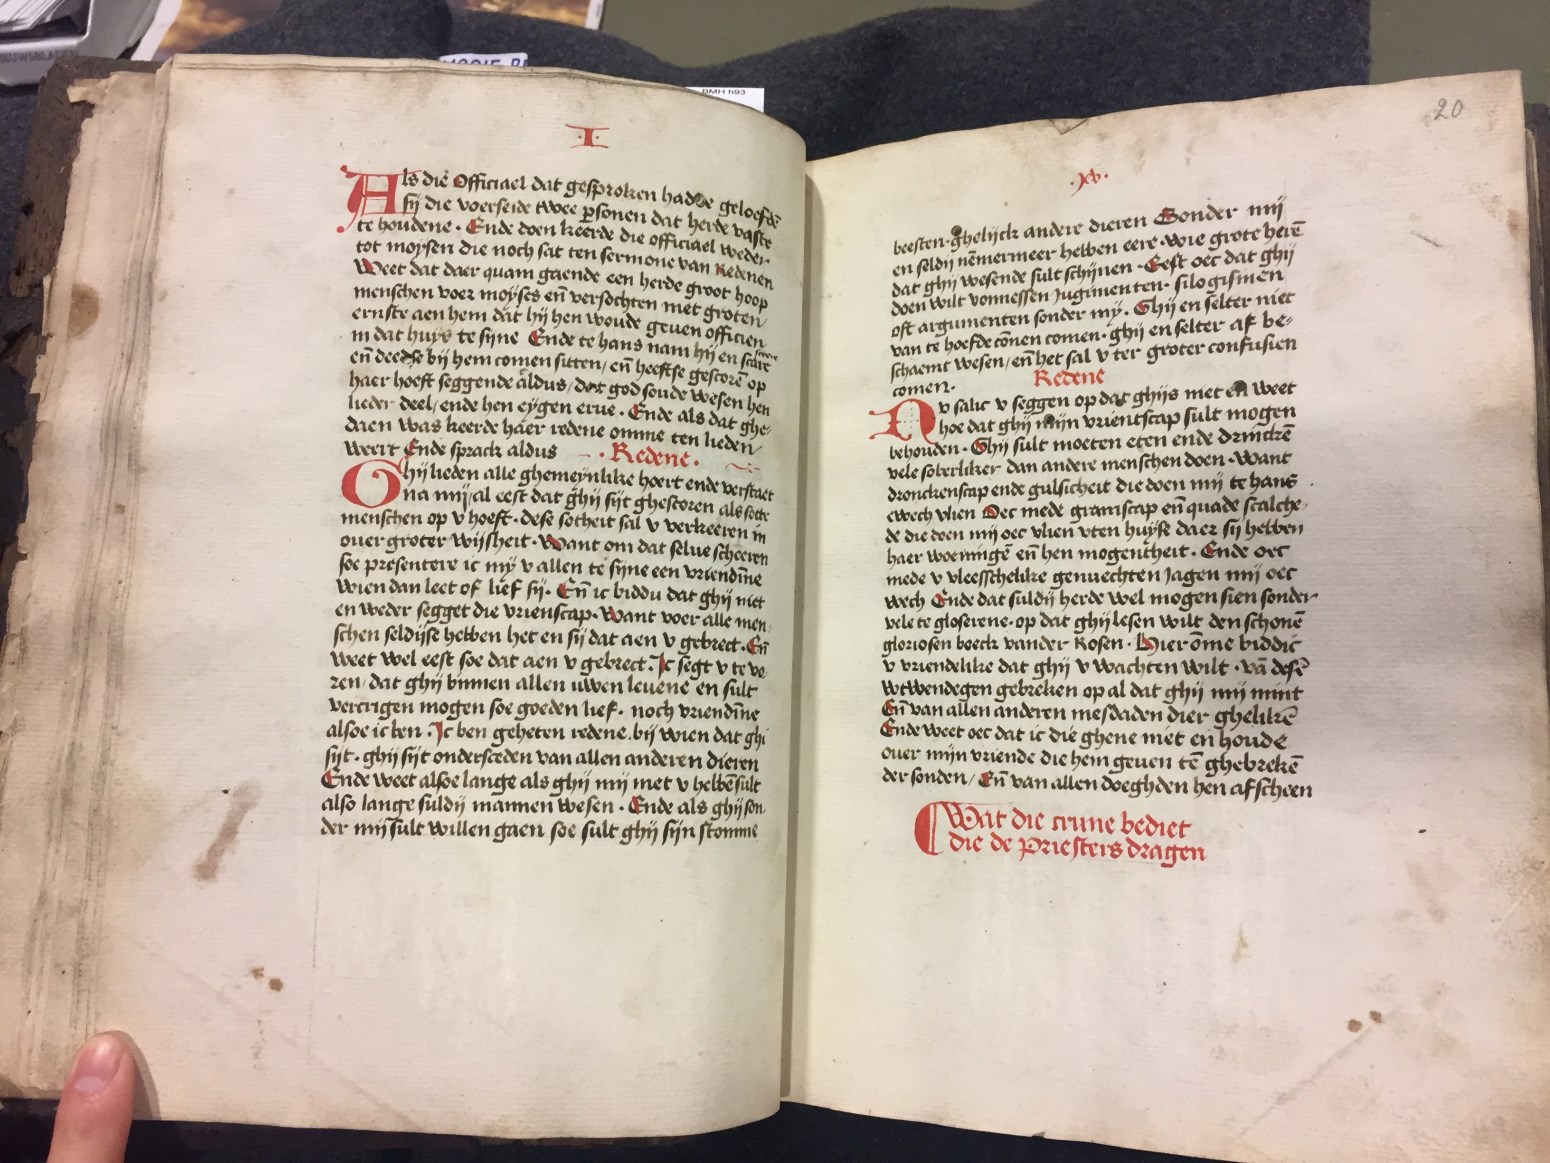 BMH h93
.I.
Als die Officiael dat gesproken hadde geloefdē
sij die voerseide twee psonen dat herde vaste
te houdene · Ende doen keerde die officiael weder
tot moysen die noch sat ten sermone van Redenen
Weet dat daer quam gaende een herde groot hoop
menschen voer moyses eñ versochten met groten
ernste aen hem dat hij hen woude geuen officien
in dat huys te sijne Ende te hans nam hij en
eñ deedse bij hem comen sitten / eñ heeftse gescorē op
haer hoeft seggende aldus / dat god soude wesen hen
lieder deel / ende hen eygen erue · Ende als dat ghe-
daen was keerde haer redene omme ten lieden
weert Ende sprack aldus · Redene ·
Ghij lieden alle ghemeynlike hoert ende verstaet
na mij / al eest dat ghij sijt ghescoren als sotte
menschen op v hoeft · dese sotheit sal v verkeeren in
ouer groter wijsheit · Want om dat selue scheeren
soe presentere ic mij v allen te sijne een vriendīne
wien dan leet of lief sij · Eñ ic biddu dat ghij niet
en weder segget die vrienscap · Want voer alle men-
schen seldijse hebben het en sij dat aen v gebrect · Eñ
weet wel eest soe dat aen v gebrect · Ic segt v te vo
ren / dat ghij binnen allen uwen leuene en sult
vercrigen mogen soe goeden lief · noch vriendīne
alsoe ic ben · Ic ben geheten redene bij wien dat ghi
sijt · ghij sijt ondersceden van allen anderen dieren
Ende weet alsoe lange als ghij mij met v hebbē sult
also lange suldij mannen wesen · Ende als ghij son
der mij sult willen gaen soe sult ghij sijn stomme
20
·xv·
beesten · ghelijck andere dieren Sonder mij
en seldij nēmermeer hebben eere · wie grote herē
dat ghij wesende sult schijnen · Eest oec dat ghij
doen wilt vonnessen Jugimenten · silogismen
oft argumenten sonder mij · Ghij en selter niet
van te hoefde cōnen comen · ghij en selter af be-
schaemt wesen / eñ het sal v ter groter confusien
comen · Redene
Nv salic v seggen op dat ghijs niet en weet
hoe dat ghij mijn vrientscap sult mogen
behouden · Ghij sult moeten eten ende drinckē
vele soberliker dan andere menschen doen · Want
dronckenscap ende gulsicheit die doen mij te hans
ewech vlien Oec mede gramscap eñ quade scalche-
de die doen mij oec vlien vten huyse daer sij hebben
haer woeningē eñ hen mogentheit · Ende oec
mede v vleesschelike genuechten Jagen mij oec
wech Ende dat suldij herde wel mogen sien sonder
vele te gloserene · op dat ghij lesen wilt den schonē
gloriosen boeck vander Rosen · Hier ōme biddic
v vriendelike dat ghij v wachten wilt · vā desē
wtwendegen gebreken op al dat ghij mij mint
Eñ van allen anderen mesdaden dier ghelikē
Ende weet oec dat ic die ghene niet en houde
ouer mijn vriende die hem geuen tē ghebrekē
der sonden / Eñ van allen doeghden hen af scheen
Wat die crune bediet
die de Priesters dragen